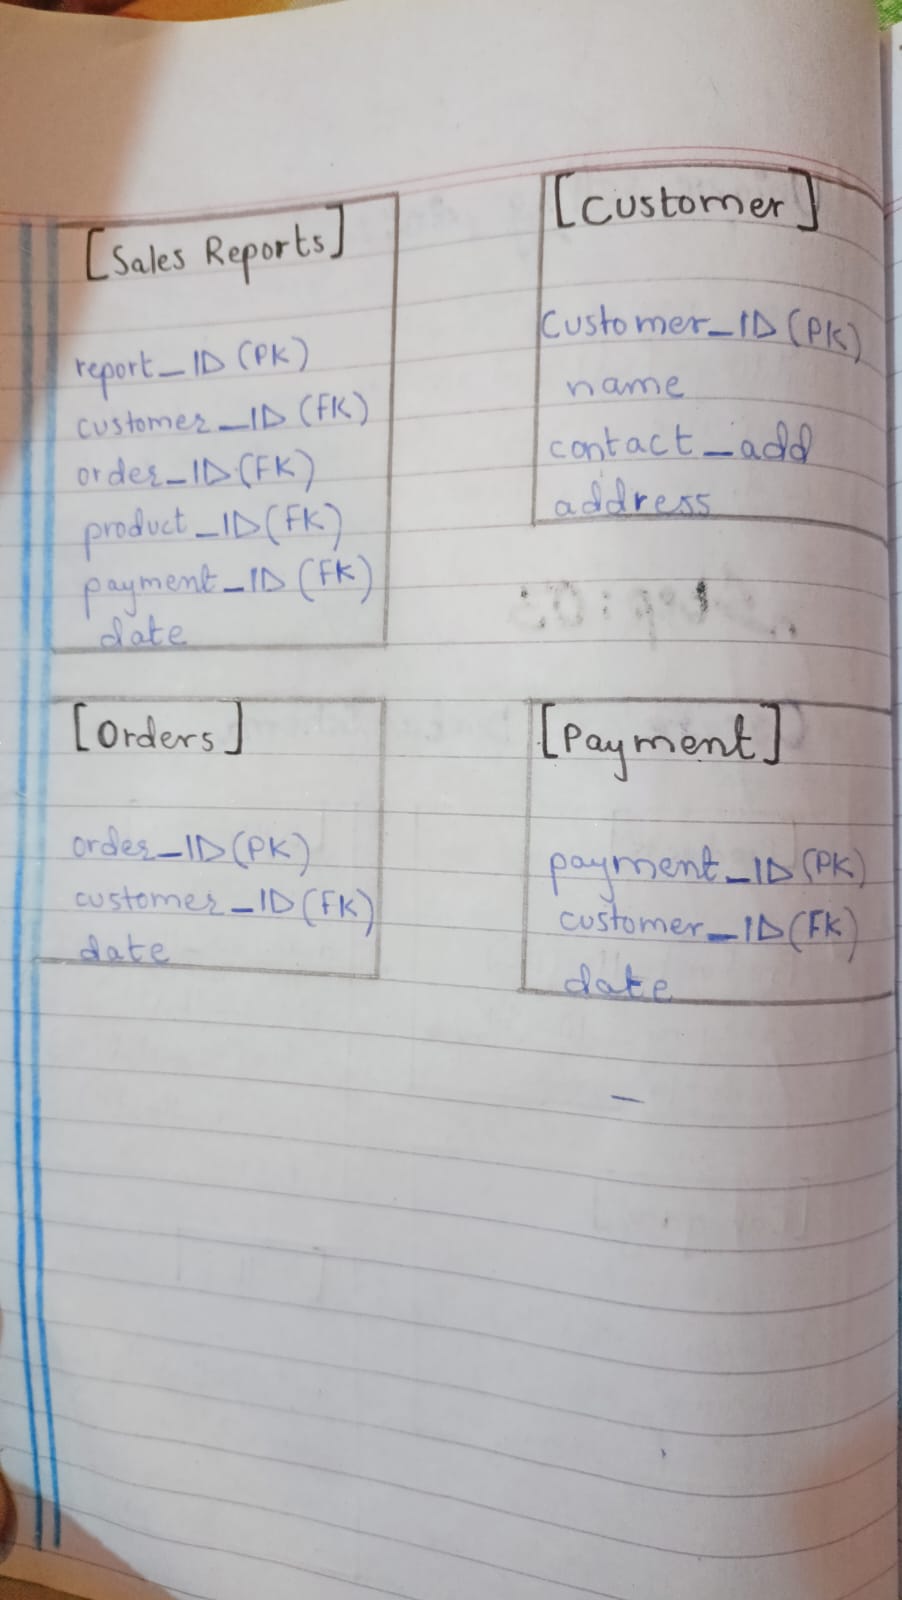 [Sales Reports]
report_ID (PK)
customer_ID (FK)
order_ID (FK)
product_ID (FK)
payment_ID (FK)
date
[Customer]
Customer_ID (PK)
name
contact_add
address
[Orders]
order_ID (PK)
customer_ID (FK)
date
[Payment]
payment_ID (PK)
customer_ID (FK)
date